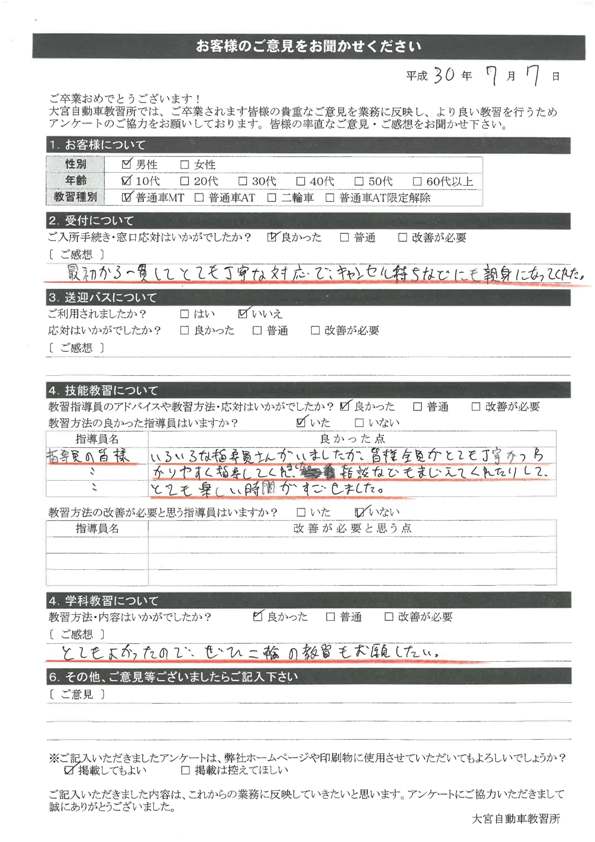 お客様のご意見をお聞かせください
平成 30 年 7 月 7 日
ご卒業おめでとうございます!
大宮自動車教習所では、ご卒業されます皆様の貴重なご意見を業務に反映し、より良い教習を行うため
アンケートのご協力をお願いしております。皆様の率直なご意見・ご感想をお聞かせ下さい。
1. お客様について
性別 ☑ 男性 □ 女性
年齢 ☑ 10代 □ 20代 □ 30代 □ 40代 □ 50代 □ 60代以上
教習種別 ☑ 普通車MT □ 普通車AT □ 二輪車 □ 普通車AT限定解除
2. 受付について
ご入所手続き・窓口応対はいかがでしたか? ☑ 良かった □ 普通 □ 改善が必要
[ ご感想 ]
最初から一貫してとても丁寧な対応で、キャンセル待ちなどにも親身になってくれた。
3. 送迎バスについて
ご利用されましたか? □ はい ☑ いいえ
応対はいかがでしたか? □ 良かった □ 普通 □ 改善が必要
[ ご感想 ]
4. 技能教習について
教習指導員のアドバイスや教習方法・応対はいかがでしたか? ☑ 良かった □ 普通 □ 改善が必要
教習方法の良かった指導員はいますか? ☑ いた □ いない
指導員名 良かった点
指導員の皆様 いろいろな指導員さんがいましたが、皆様全員がとても丁寧かつわ
〃 かりやすく指導してくれ、
なでもまじえてくれたりして、
〃 とても楽しい時間がすごせました。
教習方法の改善が必要と思う指導員はいますか? □ いた ☑ いない
指導員名 改善が必要と思う点
4. 学科教習について
教習方法・内容はいかがでしたか? ☑ 良かった □ 普通 □ 改善が必要
[ ご感想 ]
とてもよかったので、ぜひ二輪の教習もお願したい。
6. その他、ご意見等ございましたらご記入下さい
[ ご意見 ]
※ご記入いただきましたアンケートは、弊社ホームページや印刷物に使用させていただいてもよろしいでしょうか?
☑ 掲載してもよい □ 掲載は控えてほしい
ご記入いただきました内容は、これからの業務に反映していきたいと思います。アンケートにご協力いただきまして
誠にありがとうございました。
大宮自動車教習所